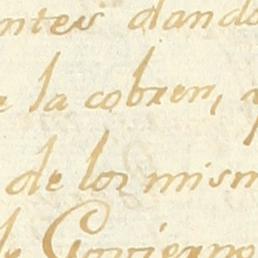 ntes dando
la cobren,
de los mism
Govierno